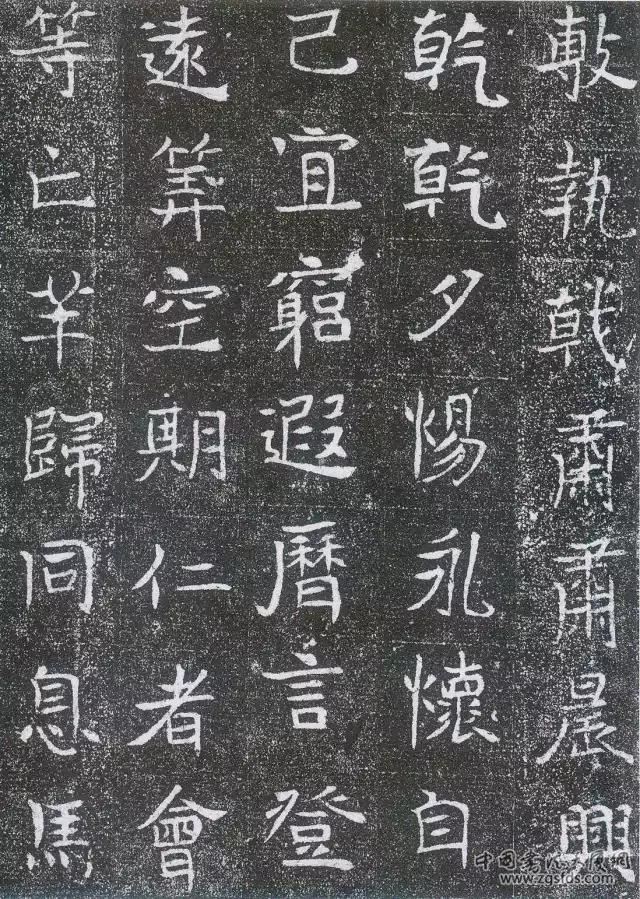 敷執戟肅肅晨興
乾乾夕惕永懷自
己宜窮遐曆言登
遠筭空期仁者會
等亡羊歸同息馬
www.zgsfds.com